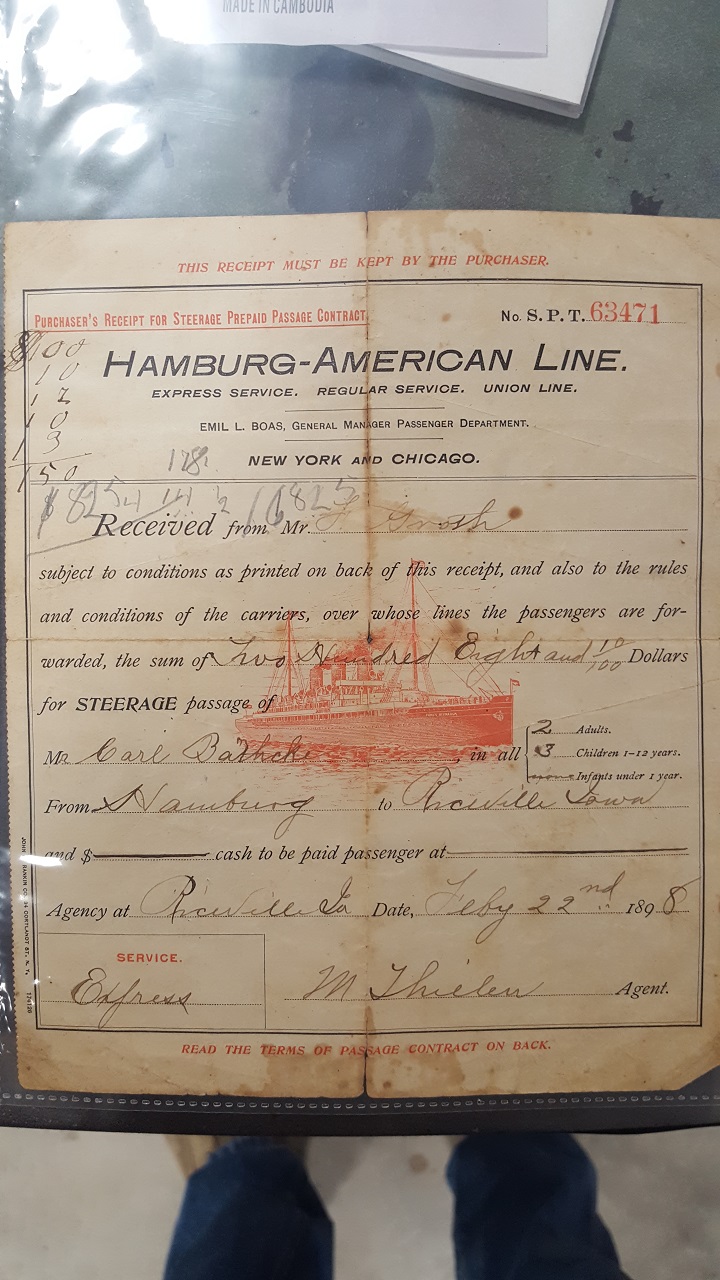 MADE IN CAMBODIA
THIS RECEIPT MUST BE KEPT BY THE PURCHASER.
PURCHASER'S RECEIPT FOR STEERAGE PREPAID PASSAGE CONTRACT.
No. S. P. T. 63471
$100
10
12
10
13
150
HAMBURG-AMERICAN LINE.
EXPRESS SERVICE. REGULAR SERVICE. UNION LINE.
EMIL L. BOAS, GENERAL MANAGER PASSENGER DEPARTMENT.
NEW YORK AND CHICAGO.
Received from Mr. Grosh
subject to conditions as printed on back of this receipt, and also to the rules
and conditions of the carriers, over whose lines the passengers are for-
warded, the sum of Two Hundred Eight and 10/100 Dollars
for STEERAGE passage of
Mr. Carl Bathcke, in all
2 Adults.
3 Children 1-12 years.
none Infants under 1 year.
From Hamburg to Riceville Iowa
and $ cash to be paid passenger at
Agency at Riceville Ia Date, Feby 22nd 1898
SERVICE.
Express
M Thielen Agent.
READ THE TERMS OF PASSAGE CONTRACT ON BACK.